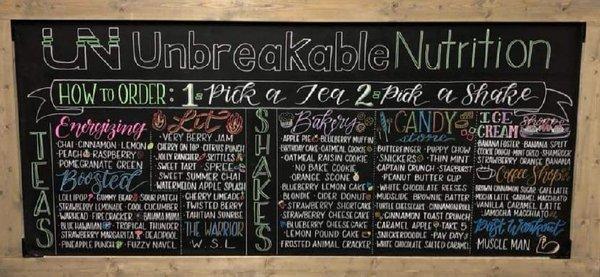 UN Unbreakable Nutrition
HOW TO ORDER: 1st Pick a Tea 2nd Pick a Shake
TEAS
Energizing
CHAI · CINNAMON · LEMON
PEACH · RASPBERRY
POMEGRANATE GREEN
Boosted
LOLLIPOP · GUMMY BEAR · SOUR PATCH
STRAWBERRY LEMONADE · COOL CUCUMBER
WARHEAD · FIRECRACKER · BAHAMA MAMA
BLUE HAWAIIAN · TROPICAL THUNDER
STRAWBERRY MARGARITA · DEADPOOL
PINEAPPLE PUNCH · FUZZY NAVEL
Lit
VERY BERRY JAM
CHERRY ON TOP · CITRUS PUNCH
JOLLY RANCHER · SKITTLES
SWEET TART · SPREE
SWEET SUMMER CHAI
WATERMELON APPLE SPLASH
CHERRY LIMEADE
TWISTED BERRY
TAHITIAN SUNRISE
THE WARRIOR
W.S.L.
SHAKES
Bakery
APPLE PIE · BLUEBERRY MUFFIN
BIRTHDAY CAKE · OATMEAL COOKIE
OATMEAL RAISIN COOKIE
NO BAKE COOKIE
ORANGE SCONE
BLUEBERRY LEMON CAKE
BLONDIE · CIDER DONUT
STRAWBERRY SHORTCAKE
STRAWBERRY CHEESECAKE
BLUEBERRY CHEESECAKE
LEMON POUND CAKE
FROSTED ANIMAL CRACKER
CANDY
store
BUTTERFINGER · PUPPY CHOW
SNICKERS · THIN MINT
CAPTAIN CRUNCH · STARBURST
PEANUT BUTTER CUP
WHITE CHOCOLATE REESES
MUDSLIDE · BROWNIE BATTER
CINNAMON TOAST CRUNCH
CARAMEL APPLE · TAKE 5
SNICKERDOODLE · PAY DAY
WHITE CHOCOLATE SALTED CARAMEL
ICE
CREAM
ROASTED FOSTER · BANANA SPLIT
COOKIE DOUGH · MINT OREO · SHAMROCK
STRAWBERRY ORANGE BANANA
Coffee Shop
BROWN CINNAMON SUGAR · CAFE LATTE
MOCHA · CARAMEL LATTE
VANILLA CARAMEL LATTE
Post Workout
MUSCLE MAN